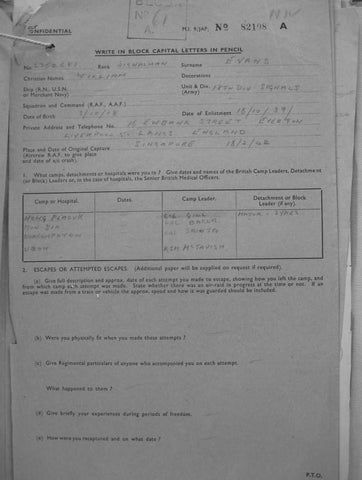 CONFIDENTIAL
M.I. 9/JAP/ No 82198 A
WRITE IN BLOCK CAPITAL LETTERS IN PENCIL
No. Rank SIGNALMAN Surname EVANS
Christian Names WILLIAM Decorations
Ship (R.N., U.S.N. or Merchant Navy) Unit & Div. 18TH DIV SIGNALS (Army)
Squadron and Command (R.A.F., A.A.F.)
Date of Birth Date of Enlistment
Private Address and Telephone No. 16 EWBANK STREET, EVERTON
LIVERPOOL 5. LANCS ENGLAND
Place and Date of Original Capture SINGAPORE 15/2/42
(Aircrew R.A.F. to give place
and date of a/c crash).
1. What camps, detachments or hospitals were you in ? Give dates and names of the British Camp Leaders, Detachment
(or Block) Leaders or, in the case of hospitals, the Senior British Medical Officers.
Camp or Hospital. Dates. Camp Leader. Detachment or Block Leader (if any).
COL GILL MAJOR SYKES
NON
UBON RSM McTAVISH
2. ESCAPES OR ATTEMPTED ESCAPES. (Additional paper will be supplied on request if required).
(a) Give full description and approx. date of each attempt you made to escape, showing how you left the camp, and
from which camp each attempt was made. State whether there was an air-raid in progress at the time or not. If an
escape was made from a train or vehicle the approx. speed and how it was guarded should be included.
(b) Were you physically fit when you made these attempts ?
(c) Give Regimental particulars of anyone who accompanied you on each attempt.
What happened to them ?
(d) Give briefly your experiences during periods of freedom.
(e) How were you recaptured and on what date ?
P.T.O.